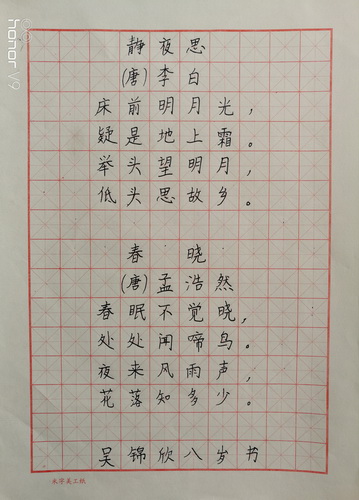 静夜思
(唐)李白
床前明月光，
疑是地上霜。
举头望明月，
低头思故乡。
春晓
(唐)孟浩然
春眠不觉晓，
处处闻啼鸟。
夜来风雨声，
花落知多少。
吴锦欣八岁书
honor V9